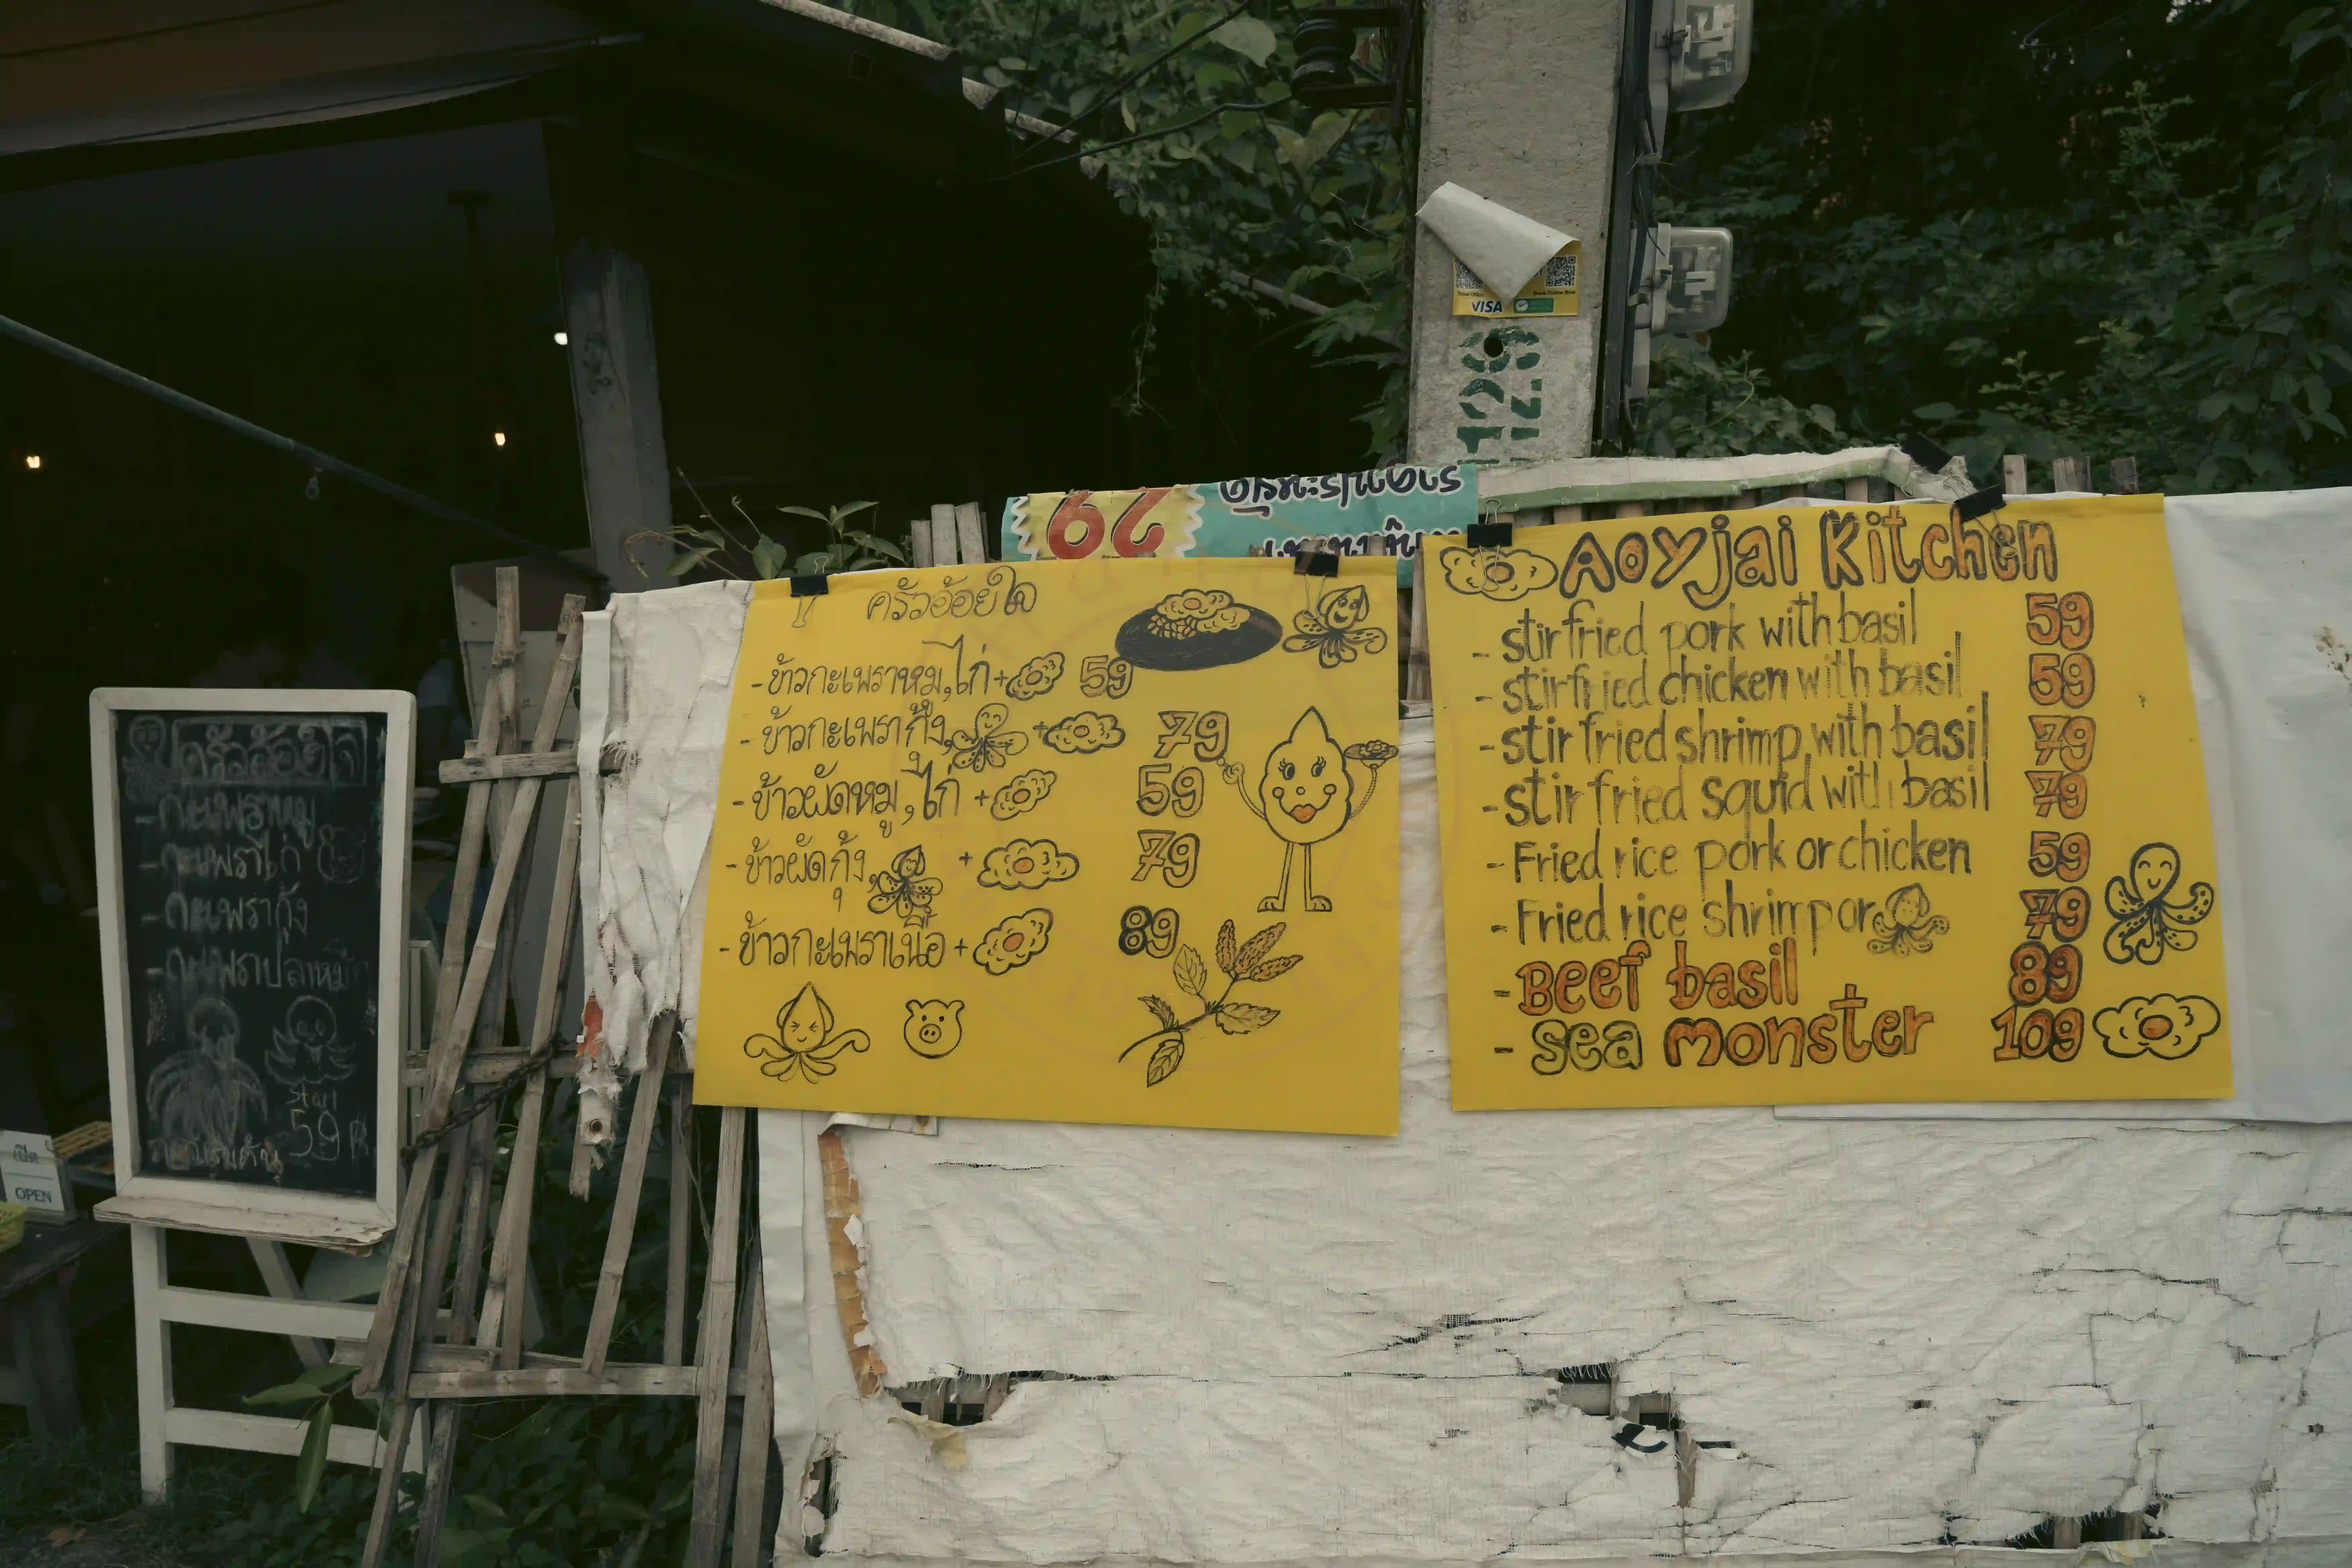 ครัวอ้อยใจ
- กะเพราหมู
- กะเพราไก่
- กะเพรากุ้ง
- กะเพราปลาหมึก
Start
59 ฿
OPEN
VISA
129
ครัวอ้อยใจ
- ข้าวกะเพราหมู, ไก่ + 59
- ข้าวกะเพรากุ้ง, + 79
- ข้าวผัดหมู, ไก่ + 59
- ข้าวผัดกุ้ง, + 79
- ข้าวกะเพราเนื้อ + 89
Aoyjai Kitchen
- stir fried pork with basil 59
- stir fried chicken with basil 59
- stir fried shrimp with basil 79
- stir fried squid with basil 79
- Fried rice pork or chicken 59
- Fried rice shrimp or 79
- Beef basil 89
- Sea monster 109